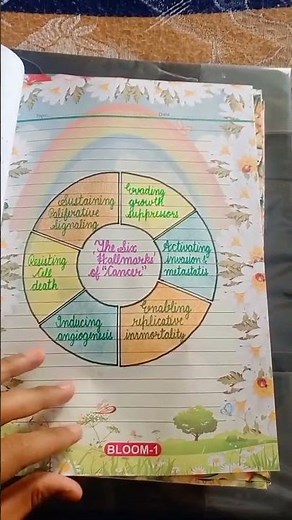 Date
Sustaining
Proliferative
Signaling
Evading
growth
suppressors
Resisting
Cell
death
"The Six
Hallmarks
of "Cancer"
Activating
invasion &
metastatis
Inducing
angiogenesis
Enabling
replicative
immortality
BLOOM-1